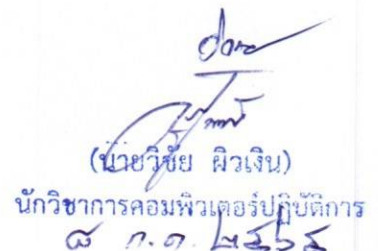 (นายวิชัย ผิวเงิน)
นักวิชาการคอมพิวเตอร์ปฏิบัติการ
๘ ก.ค. ๒๕๖๕